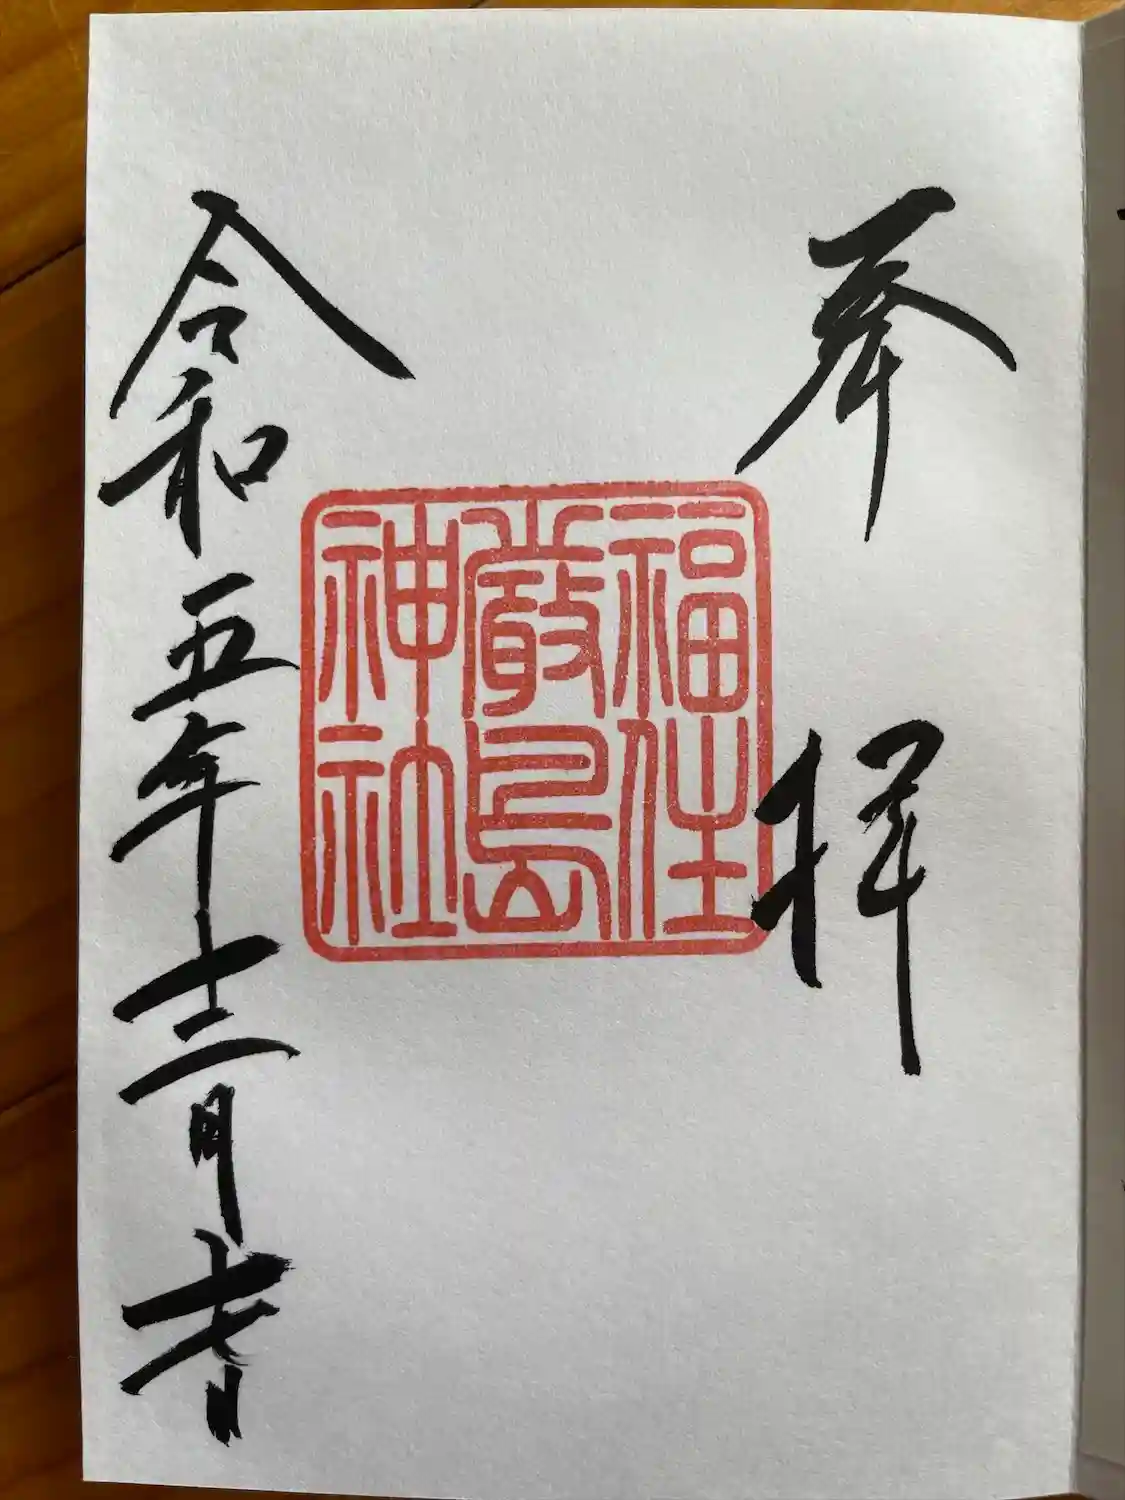 奉拝
福住
厳島
神社
令和五年十二月十七日